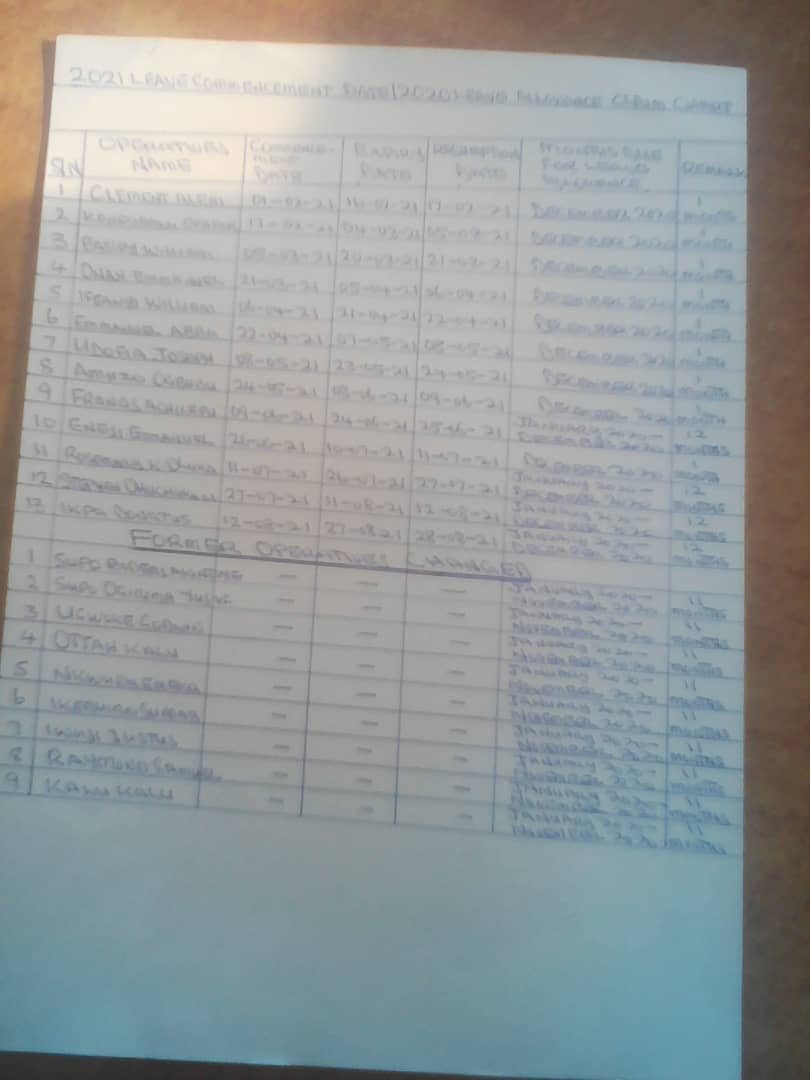 2021 LEAVE COMMENCEMENT DATE/2020 LEAVE ALLOWANCE CLAIM CHART
S/N OPERATIVES NAME COMMENCEMENT DATE EXPIRY DATE RESUMPTION DATE MONTHS DUE FOR LEAVE ALLOWANCE REMARK
1 CLEMENT 01-02-21 16-02-21 17-02-21 DECEMBER 2020 1 MONTH
2 17-02-21 04-03-21 05-03-21 DECEMBER 2020 1 MONTH
3 WILLIAM 05-03-21 20-03-21 21-03-21 DECEMBER 2020 1 MONTH
4 EMMANUEL 21-03-21 05-04-21 06-04-21 DECEMBER 2020 1 MONTH
5 IFEANYI WILLIAM 06-04-21 21-04-21 22-04-21 DECEMBER 2020 1 MONTH
6 EMMANUEL ABBA 22-04-21 07-05-21 08-05-21 DECEMBER 2020 1 MONTH
7 UDOFIA JOSEPH 08-05-21 23-05-21 24-05-21 DECEMBER 2020 1 MONTH
8 24-05-21 08-06-21 09-06-21 DECEMBER 2020 1 MONTH
9 FRANCIS 09-06-21 24-06-21 25-06-21 JANUARY 2020- DECEMBER 2020 12 MONTHS
10 ENEJI EMMANUEL 10-07-21 11-07-21 DECEMBER 2020 1 MONTH
11 11-07-21 26-07-21 27-07-21 JANUARY 2020- DECEMBER 2020 12 MONTHS
12 27-07-21 11-08-21 12-08-21 JANUARY 2020- DECEMBER 2020 12 MONTHS
13 DONATUS 12-08-21 27-08-21 28-08-21 JANUARY 2020- DECEMBER 2020 12 MONTHS
FORMER OPERATIVES CHANGED
1 SUPO - - - JANUARY 2020- NOVEMBER 2020 11 MONTHS
2 SUPO - - - JANUARY 2020- NOVEMBER 2020 11 MONTHS
3 - - - JANUARY 2020- NOVEMBER 2020 11 MONTHS
4 OTTAH KALU - - - JANUARY 2020- NOVEMBER 2020 11 MONTHS
5 - - - JANUARY 2020- NOVEMBER 2020 11 MONTHS
6 SUNDAY - - - JANUARY 2020- NOVEMBER 2020 11 MONTHS
7 JUSTUS - - - JANUARY 2020- NOVEMBER 2020 11 MONTHS
8 RAYMOND SAMUEL - - - JANUARY 2020- NOVEMBER 2020 11 MONTHS
9 KALU KALU - - - JANUARY 2020- NOVEMBER 2020 11 MONTHS